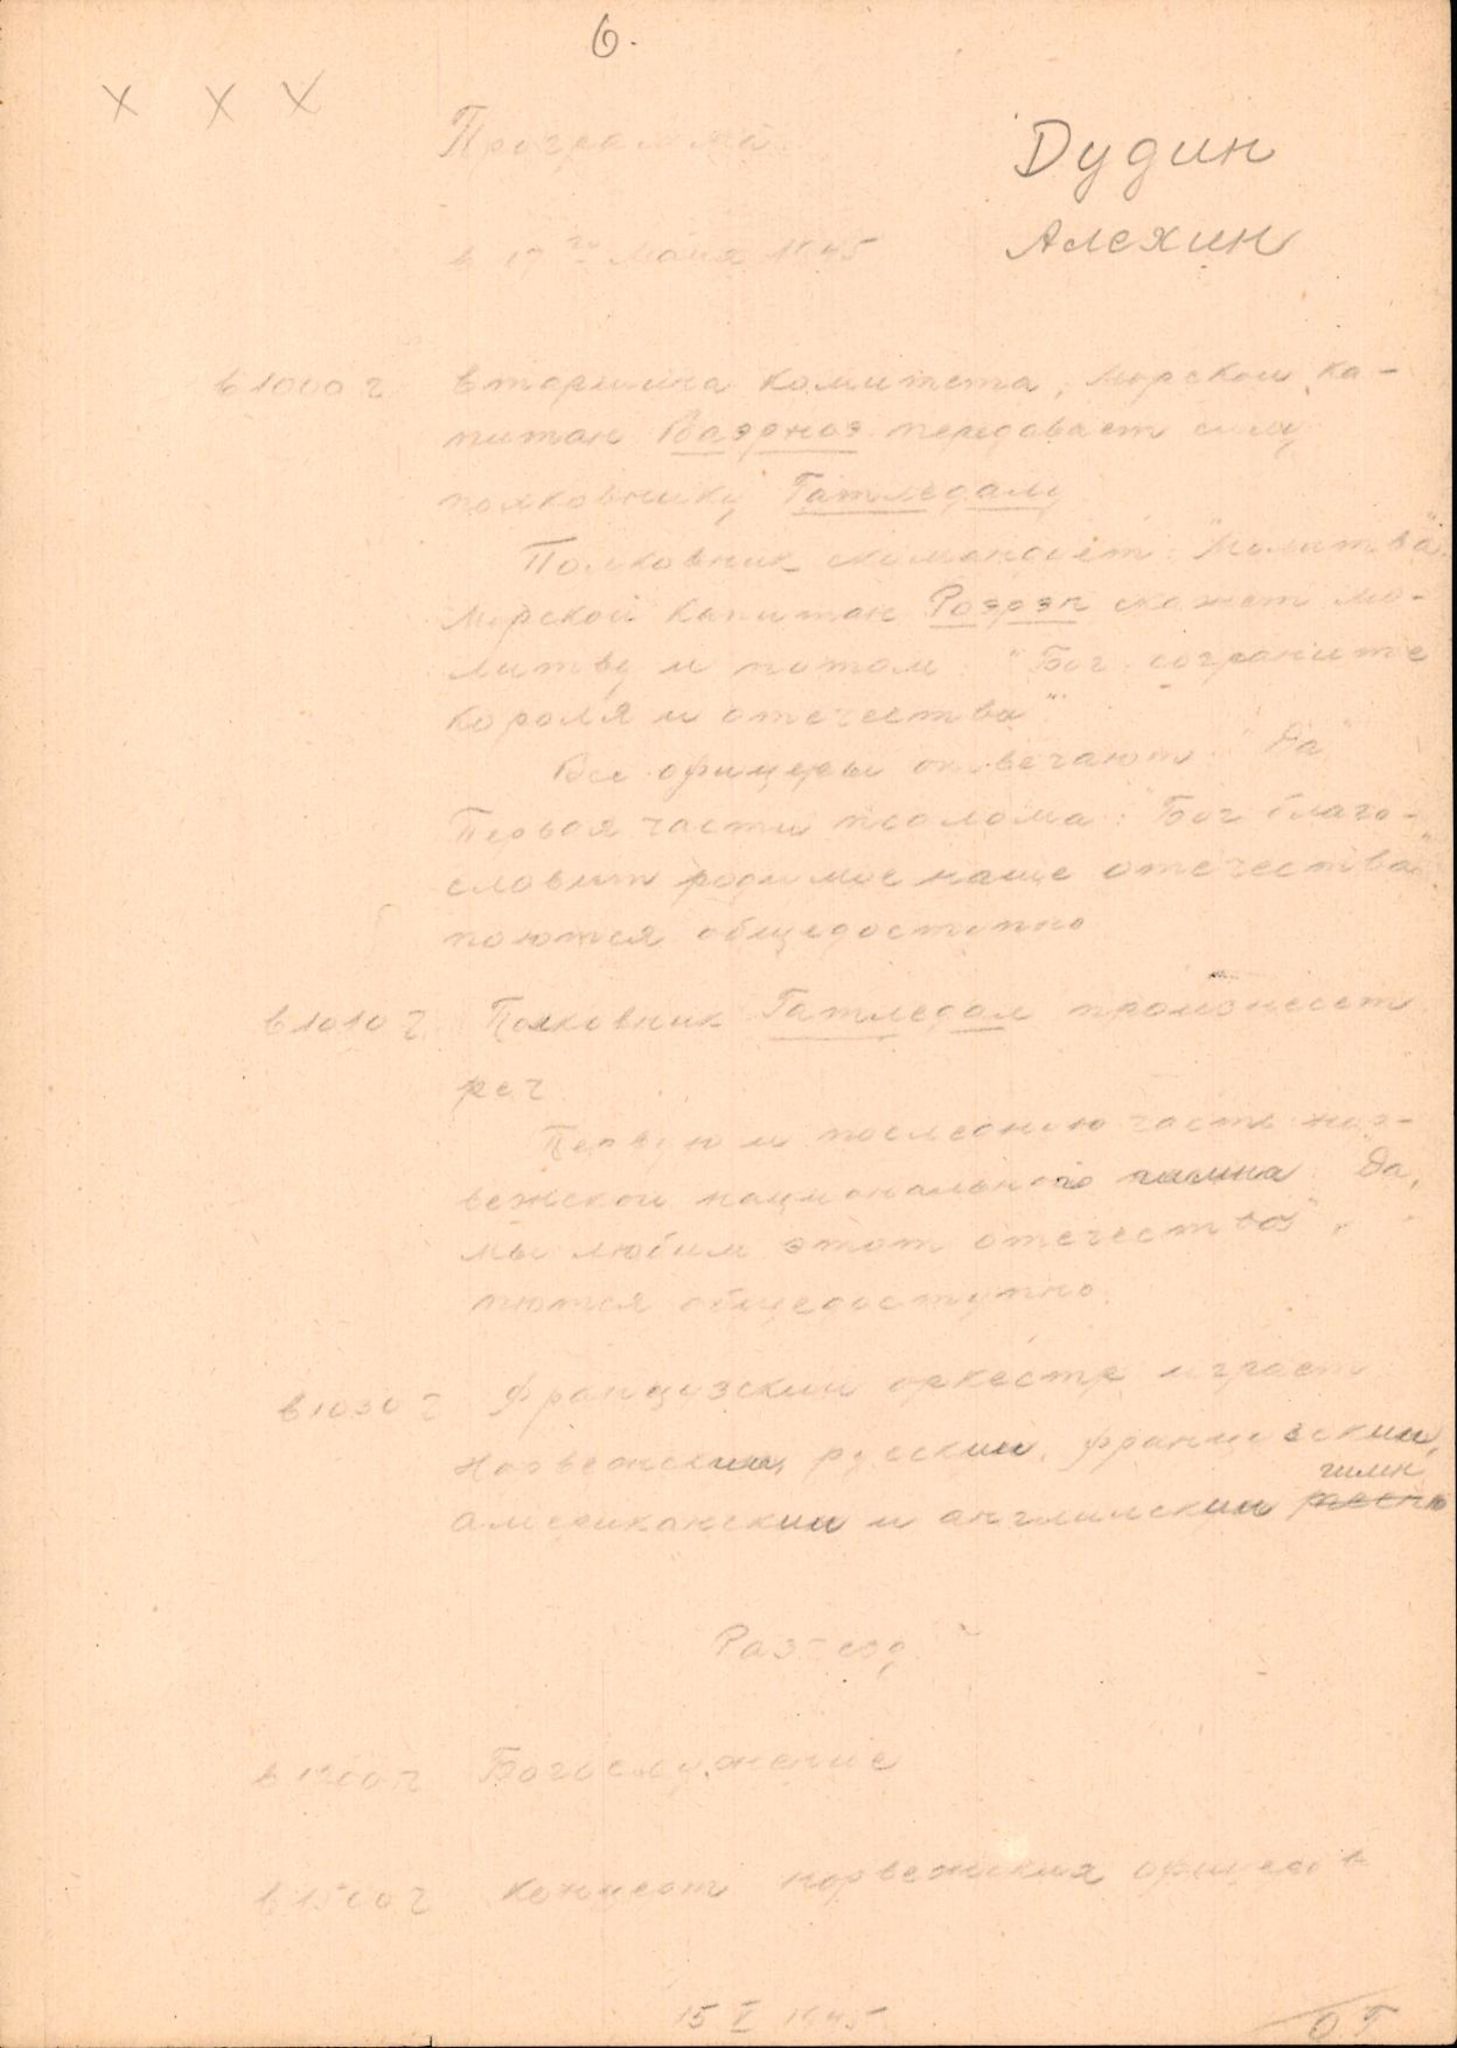 6.
X X X
Программа
Дудин
в 17го мая 1945
Алехин
в 1000 ч комитета, морской ка-
питан передавает
полковнику Гатледалу
Полковник "Молитва"
Морской капитан Роэрэн скажет мо-
литву и потом "Бог сограните
короля и отечества"
Все офицеры отвечают "Да"
Первая части псолома: "Бог благо-
словит родимое наше отечества"
поются общедоступно
в 1010 ч. Полковник Гатледал произнесет
реч
Первую и последнию часть нор-
вежской национального гимна "Да,
мы любим этот отечество",
поются общедоступно.
в 1030 ч Французский оркестр играет
норвежский, русский, французский,
гимн
американский и английский песню
в 1200 ч Богослужение
в 1500 ч концерт норвежских офицеров
15 V 1945